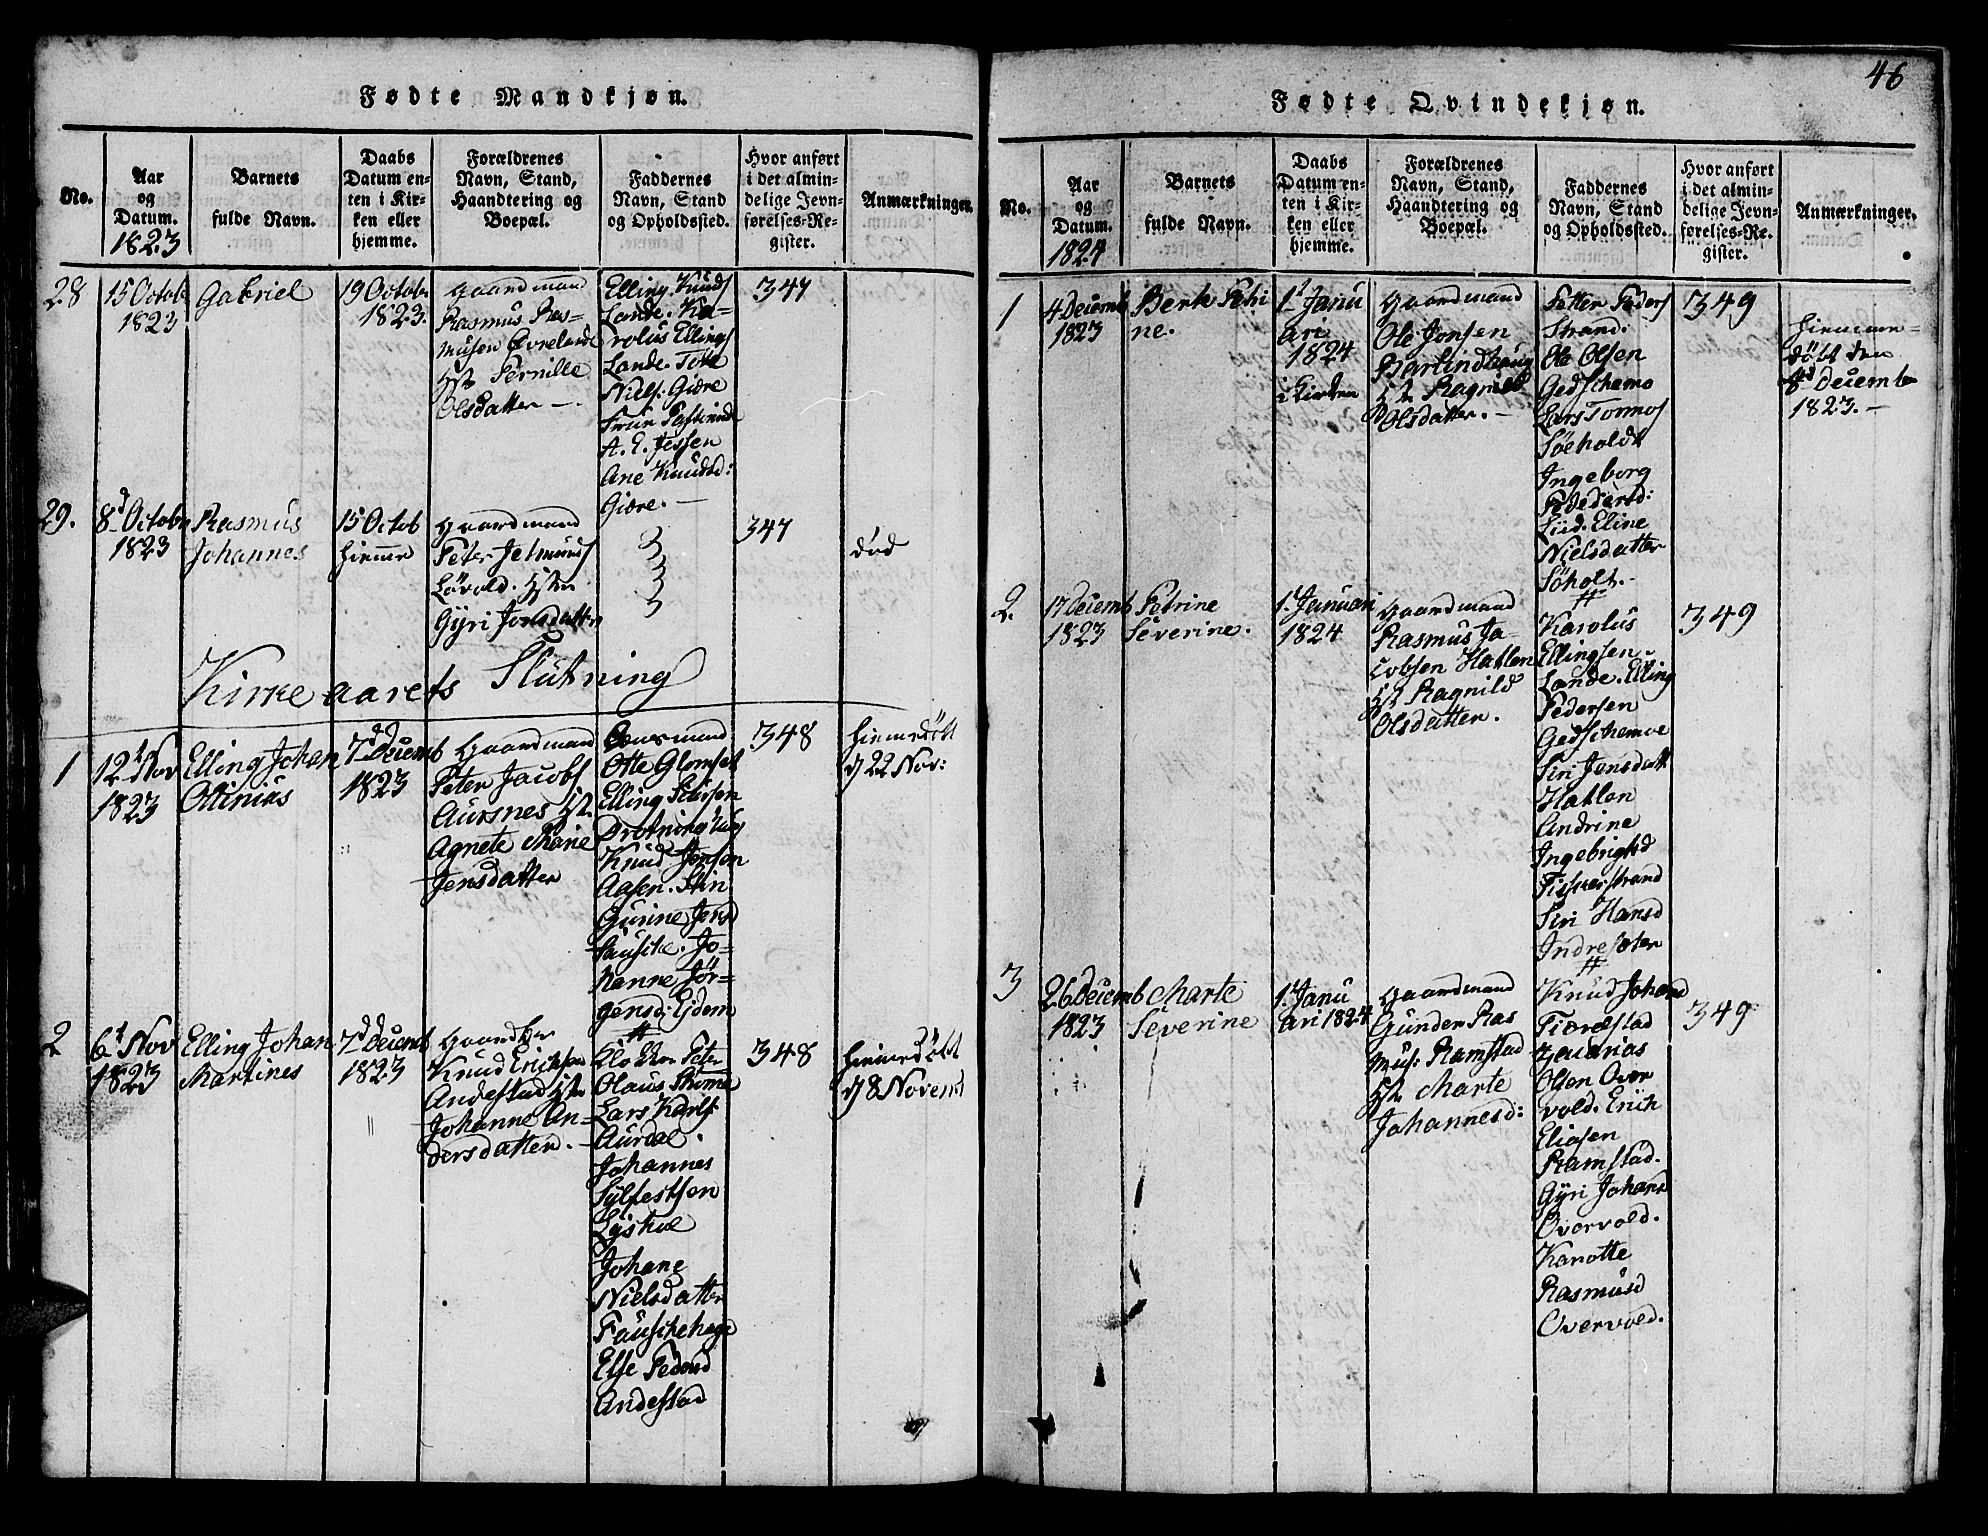 Fødte Mandkjøn.
No.
Aar
og
Datum.
1823
Barnets
fulde Navn.
Daabs
Datum en-
ten i Kir-
ken eller
hjemme.
Forældrenes
Navn, Stand,
Haandtering og
Boepæl.
Faddernes
Navn, Stand
og Opholdssted.
Hvor anført
i det almin-
delige Jevn-
førelses-Re-
gister.
Anmærkninger.
28
15 Octob
1823
Gabriel
19 Octobr
1823.
Gaardmand
Rasmus Ras-
musen Øvrelande
Pernille
Olsdatter -
Elling Knuds
Lande. Ka-
rolus Ellings
Lande. Tore
Niels: Giøre
A. E. Jessen
Ane Knudsd:
Giøre. -
347
29.
8d Octobr
1823
Rasmus
Johannes
15 Octob
hjemme
Gaardmand
Peter Jetmunds
Løvold.
Gÿri Jonsdatter
347
død
Kirke aarets Slutning
1
12t Nov
1823
Elling Johan
Ottinius
7d Decemb
1823
Gaardmand
Peter Jacobs
Aursnes
Agnete Marie
Jensdatter
Otte Glomset
Elling
Drotninghaug
Knud Jonsen
Aasen.
Gurine Jensd
Fauske. Jo-
hanne Jør-
gensd: Ejdem
348
hiemedøbt
d 22 Nov:
2
6t Nov
1823
Elling Johan
Martines
7d Decemb
1823
Knud Erichsen
Andestad
Johanne An-
dersdatter. -
Klokker Peter
Olaus Strømme
Lars Karls
Aurdal.
Johannes
Sylfestsen
Johane
Nielsdatter
Fauskehage
Else Pedersd
Andestad
348
hiemedøbt
d 8 Novemb
46
Fødte Qvindekjøn.
No.
Aar
og
Datum.
1824
Barnets
fulde Navn.
Daabs
Datum en-
ten i Kir-
ken eller
hjemme.
Forældrenes
Navn, Stand,
Haandtering og
Boepæl.
Faddernes
Navn, Stand
og Opholdssted.
Hvor anført
i det almin-
delige Jevn-
førelses-Re-
gister.
Anmærkninger.
1
4 Decemb
1823
Berte Petri
ne.
1t Janu
ari
1824
i Kirken
Gaardmand
Ole Jonsen
Barlindhaug
Ragnild
Olsdatter. -
Petter Peders
Strand.
Ole Olsen
Gedschemo
Lars Tormos
Søeholdt
Ingeborg
Pedersd:
Liid. Eline
Nielsdatter
Søholt. -
349
hiemme-
døbt den
8d Decemb
1823. -
2.
17 Decemb
1823
Petrine
Severine.
1t Januari
1824
Gaardmand
Rasmus Ja-
cobsen Hatlen
Ragnild
Olsdatter.
Karolus
Ellingsen
Lande. Elling
Pedersen
Gedschemoe
Siri Jensdatt
Hatlen
Andrine
Ingebrigtsd
Fiskerstrand
Siri Hansd
Indresæter
349
3
26 Decemb
1823
Marte
Severine
1t Janu
ari 1824
Gaardmand
Gunder Ras
mus: Ramstad
Marte
Johannesd:
Knud Johans
Fiørestad
Zacarias
Olsen Over
vold. Erich
Eliasen
Ramstad.
Gÿri Johans
Overvold.
Kanutte
Rasmusd
Overvold.
349